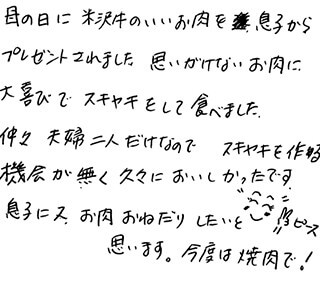 母の日に 米沢牛のいいお肉を 息子から
プレゼントされました 思いがけないお肉に
大喜びで スキヤキをして食べました.
仲々 夫婦二人だけなので スキヤキを作る
機会が無く久々においしかったです.
息子にヌ お肉おねだりしたいと ピース
思います。今度は焼肉で!